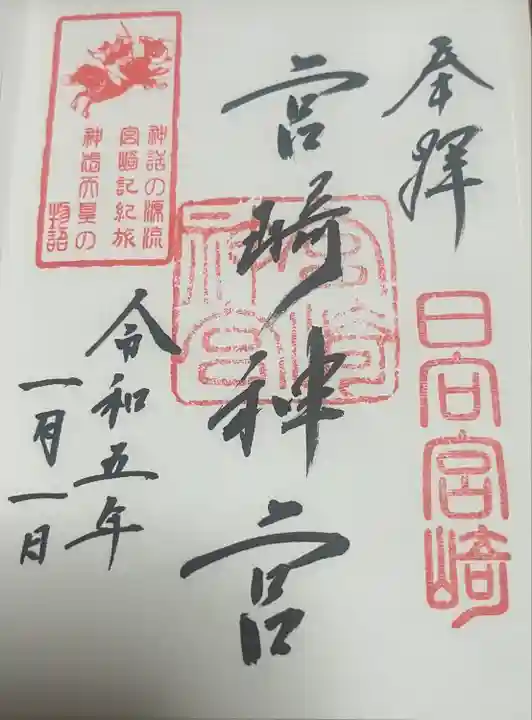 奉拝
日向宮崎
宮崎神宮
宮崎神宮
神話の源流
宮崎記紀旅
神武天皇の
物語
令和五年
一月一日